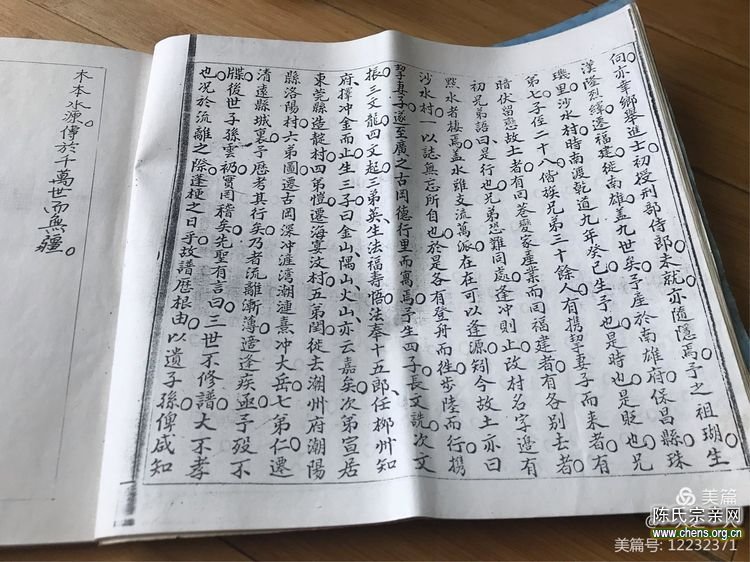 伺亦幸鄉舉進士初授刑部侍郎未就亦隨隱焉予之祖瑚生
漢隆烈縛遷福建徙南雄蓋九世矣予產於南雄府保昌縣珠
璣里沙水村時南渡乾道九年癸巳生予也是時也是貶也兄
第七子侄二十八偕族兄弟三十餘人有携挈妻子而來者有
時伏留戀故土者有回巷變家產業而回福建者有各別去者
初兄弟語曰是行也兄弟恐難同處逢冲則止故村名字邉有
㸃水者棲焉盖水雖支流萬派在在可以逢源矧今故土亦曰
沙水村一以誌無忘所自也於是各有登舟而徃步陸而行携
挈妻子遂至廣之古岡德行里而寓焉予生四子長文詵次文
振三文龍四文起三弟英生法福壽悟法奉十五郎任柳州知
府擇冲金而止生三子曰金山隅山火山亦云嘉矣次第宣居
東莞縣造靛村四弟愷遷海宴汶村五弟閏徙去潮州府潮陽
縣洛陽村六弟圖遷古岡深冲涯湾潮漣熹冲大岳七弟仁遷
清遠縣城裏予厯考其行矣乃者流離漸薄遭逢疾亟予歿不
牒後世子孫雲礽實罔稽矣先聖有言曰三世不修譜大不孝
也况於流離之際蓬梗之日乎故譜厯根由以遺子孫俾咸知
木本水源傳於千萬世而無疆
美篇
陈氏宗亲网
www.chens.org.cn
美篇号: 12232371